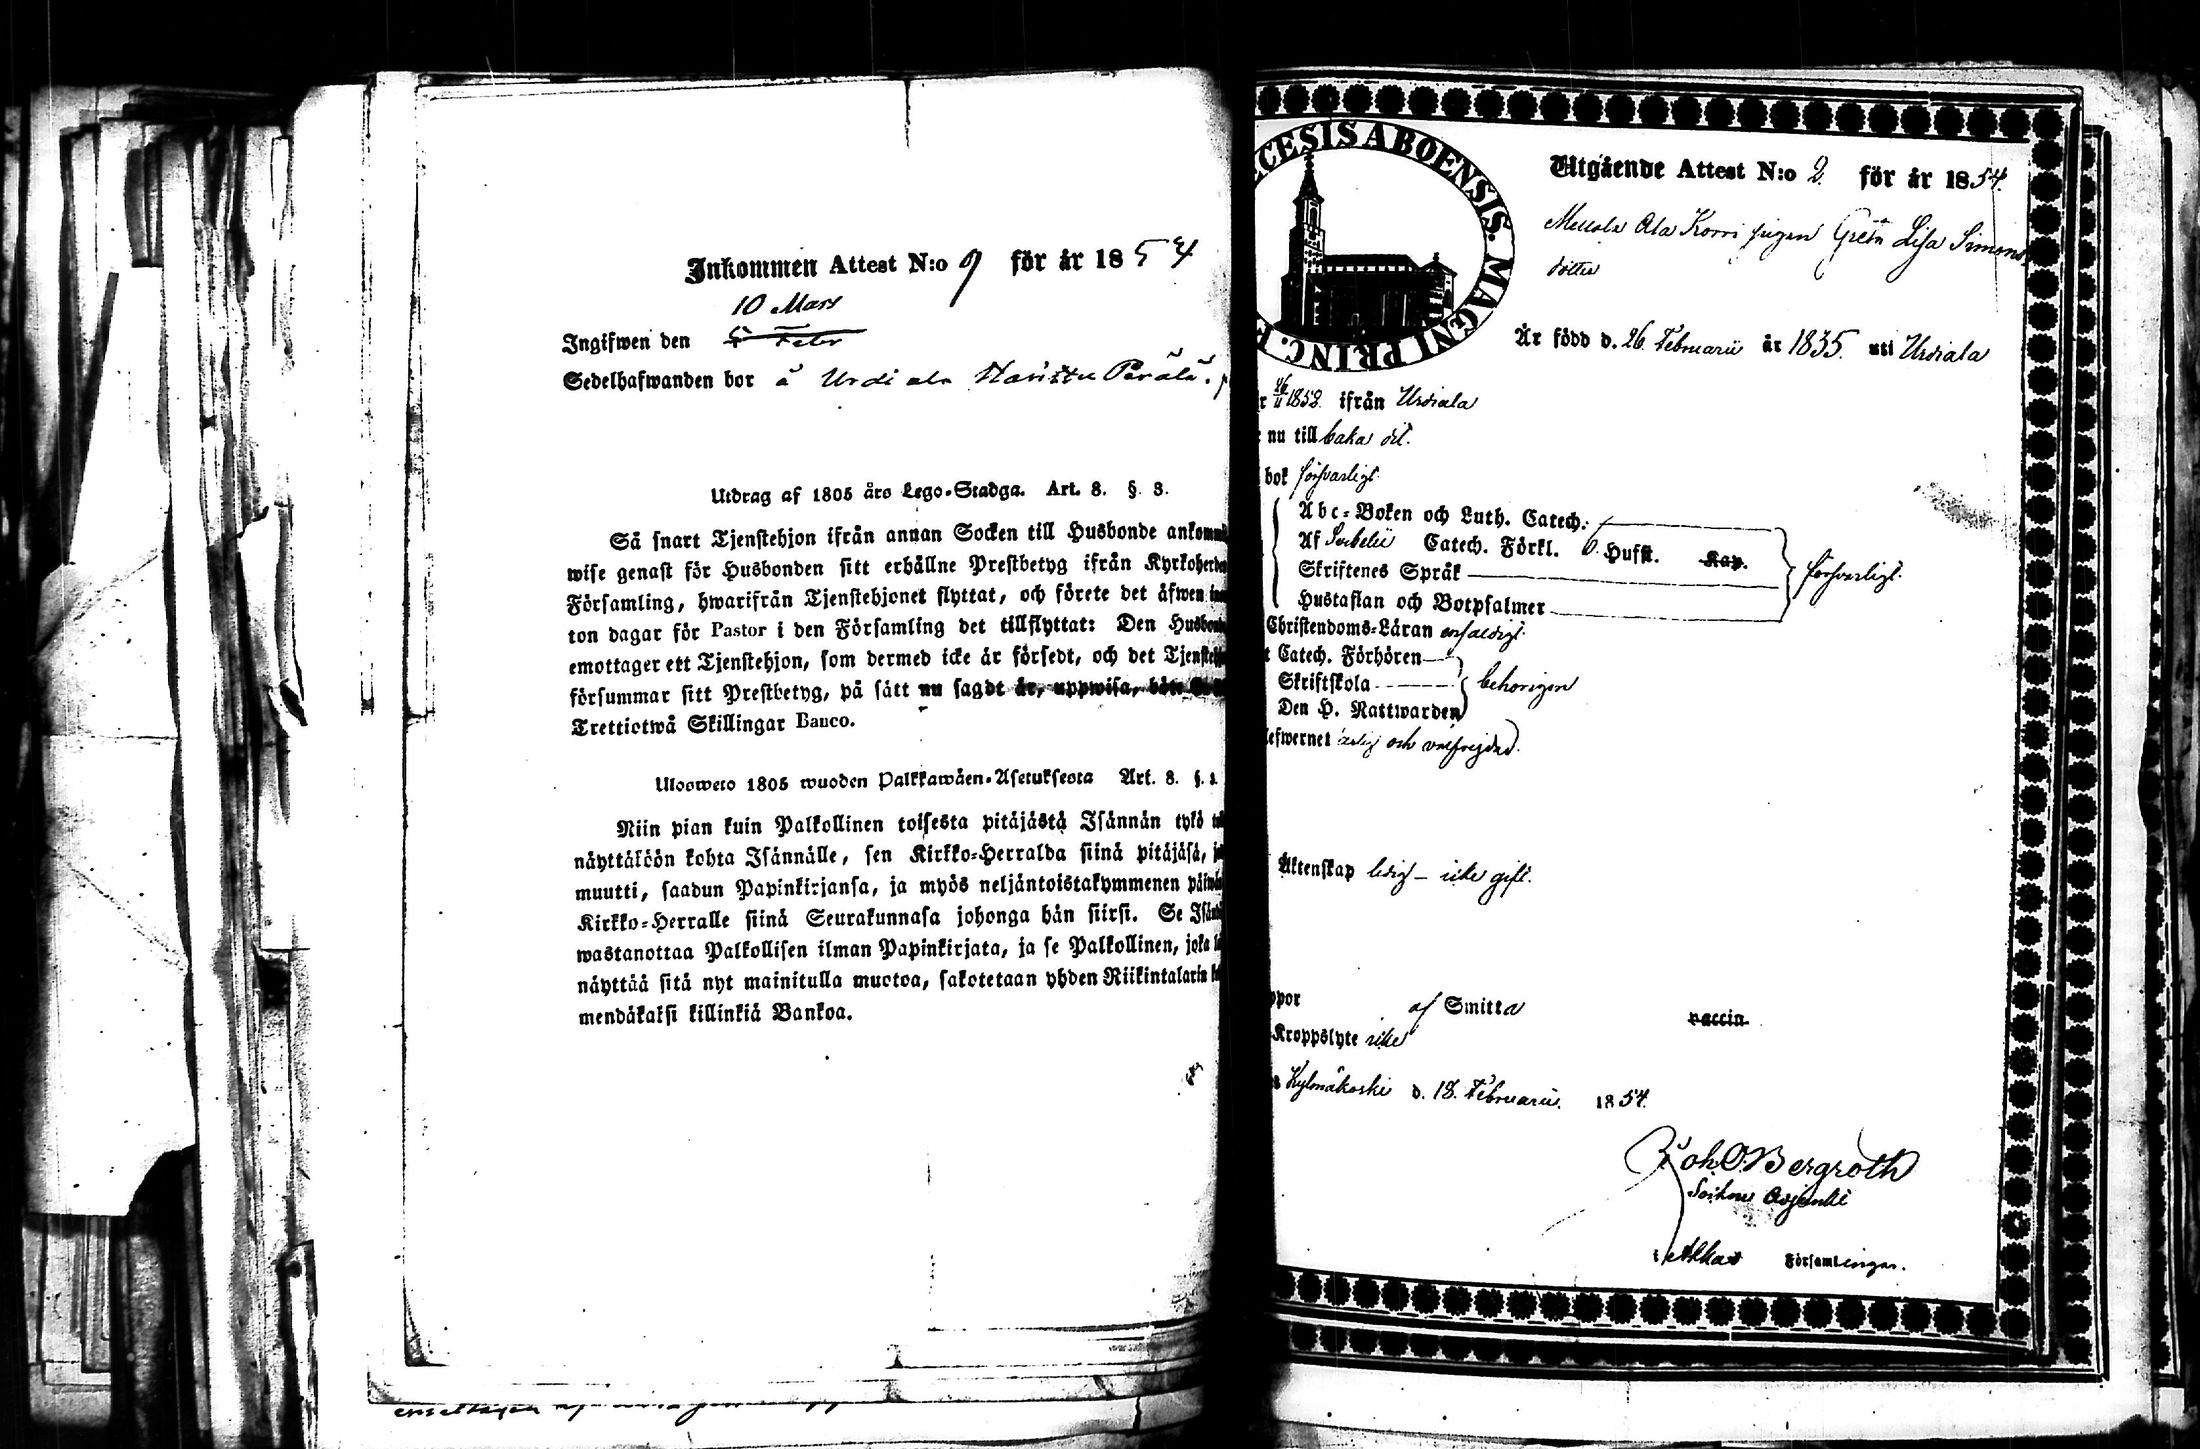 Inkommen Attest N:o 9 för år 1854
10 Mars
Ingifwen den 5 Febr
Sedelhafwanden bor å Urdiala Perälä.
Utdrag af 1805 års Lego-Stadga. Art. 8. §. 3.
Så snart Tjenstehjon ifrån annan Socken till Husbonde
wise genast för Husbonden sitt erhållne Prestbetyg ifrån
Församling, hwarifrån Tjenstehjonet flyttat, och förete det äfwen
ton dagar för Pastor i den Församling det tillflyttat: Den
emottager ett Tjenstehjon, som dermed icke är försedt, och det
försummar sitt Prestbetyg, på sätt nu sagdt är, uppwisa, böte
Trettiotwå Skillingar Banco.
Ulosweto 1805 wuoden Palkkawäen-Asetuksesta Art. 8. §.
Niin pian kuin Palkollinen toisesta pitäjästä Isännän tykö
näyttäköön kohta Isännälle, sen Kirkko-Herralda siinä pitäjäsä,
muutti, saadun Papinkirjansa, ja myös neljäntoistakymmenen
Kirkko-Herralle siinä Seurakunnasa johonga hän siirsi. Se
wastanottaa Palkollisen ilman Papinkirjata, ja se Palkollinen, joka
näyttää sitä nyt mainitulla muotoa, sakotetaan yhden Riikintalarin
mendäkaksi killinkiä Bankoa.
CESIS ABOENSIS. MAGNI PRINC.
Utgående Attest N:o 2. för år 1854.
Mellola Ala Korri pigan Greta Lisa Simons
dotter
Är född d. 26 Februarii år 1835. uti Urdiala
1852 ifrån Urdiala
nu till baka dit.
bok försvarligt
Abc-Boken och Luth. Catech.
Af Svebelii Catech. Förkl. 6 Hufst. Kap.
Skriftenes Språk
försvarligt.
Hustaflan och Botpsalmer
Christendoms-Läran enfaldigt.
Catech. Förhören
Skriftskola
behörigen
Den H. Nattwarden
lefwernet ärlig och välfrejdad.
Äktenskap ledig – icke gift.
af Smitta vaccin
Kroppslyte icke
Kylmäkoski d. 18. Februarii. 1854.
Joh. O. Bergroth
Sockne Adjunkt
i Akkas Församlingar.